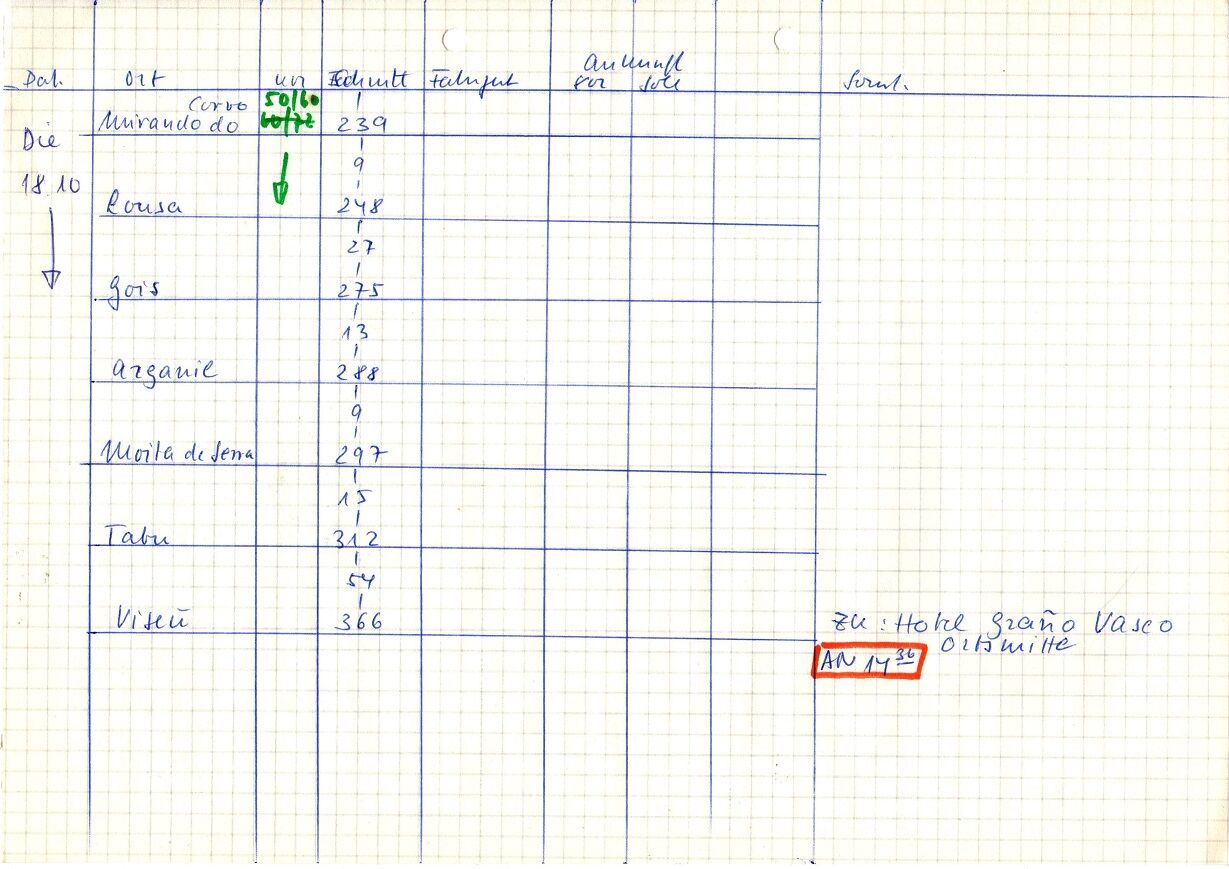 Dat. Ort km/h Fahrzeit Ankunft
vor soll Sonst.
Corvo 50/60
Mirando do 60/72 239
Die
9
18.10
Lousa 248
27
Gois 275
13
Arganil 288
9
Moita de Serra 297
15
Tabu 312
54
Viseū 366 ZU: Hotel Graño Vasco
Ortsmitte
AN 14 36